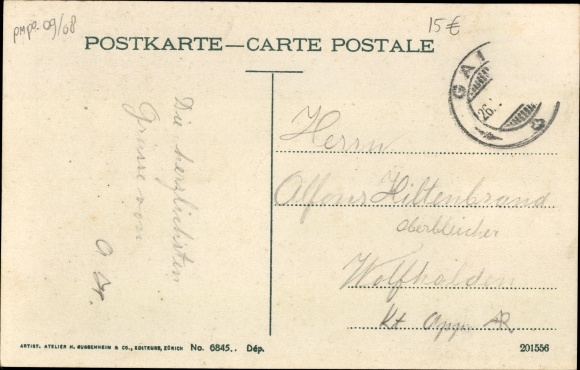 pmpo. 09/08
15 €
POSTKARTE—CARTE POSTALE
GAI
26.
Die herzlichsten
Grüsse von
Herrn
Alfons Hiltenbrand
Oberbleicher
Wolfhalden
Kt App. AR
ARTIST. ATELIER H. GUGGENHEIM & CO., EDITEURS, ZÜRICH No. 6845.. Dép.
201556